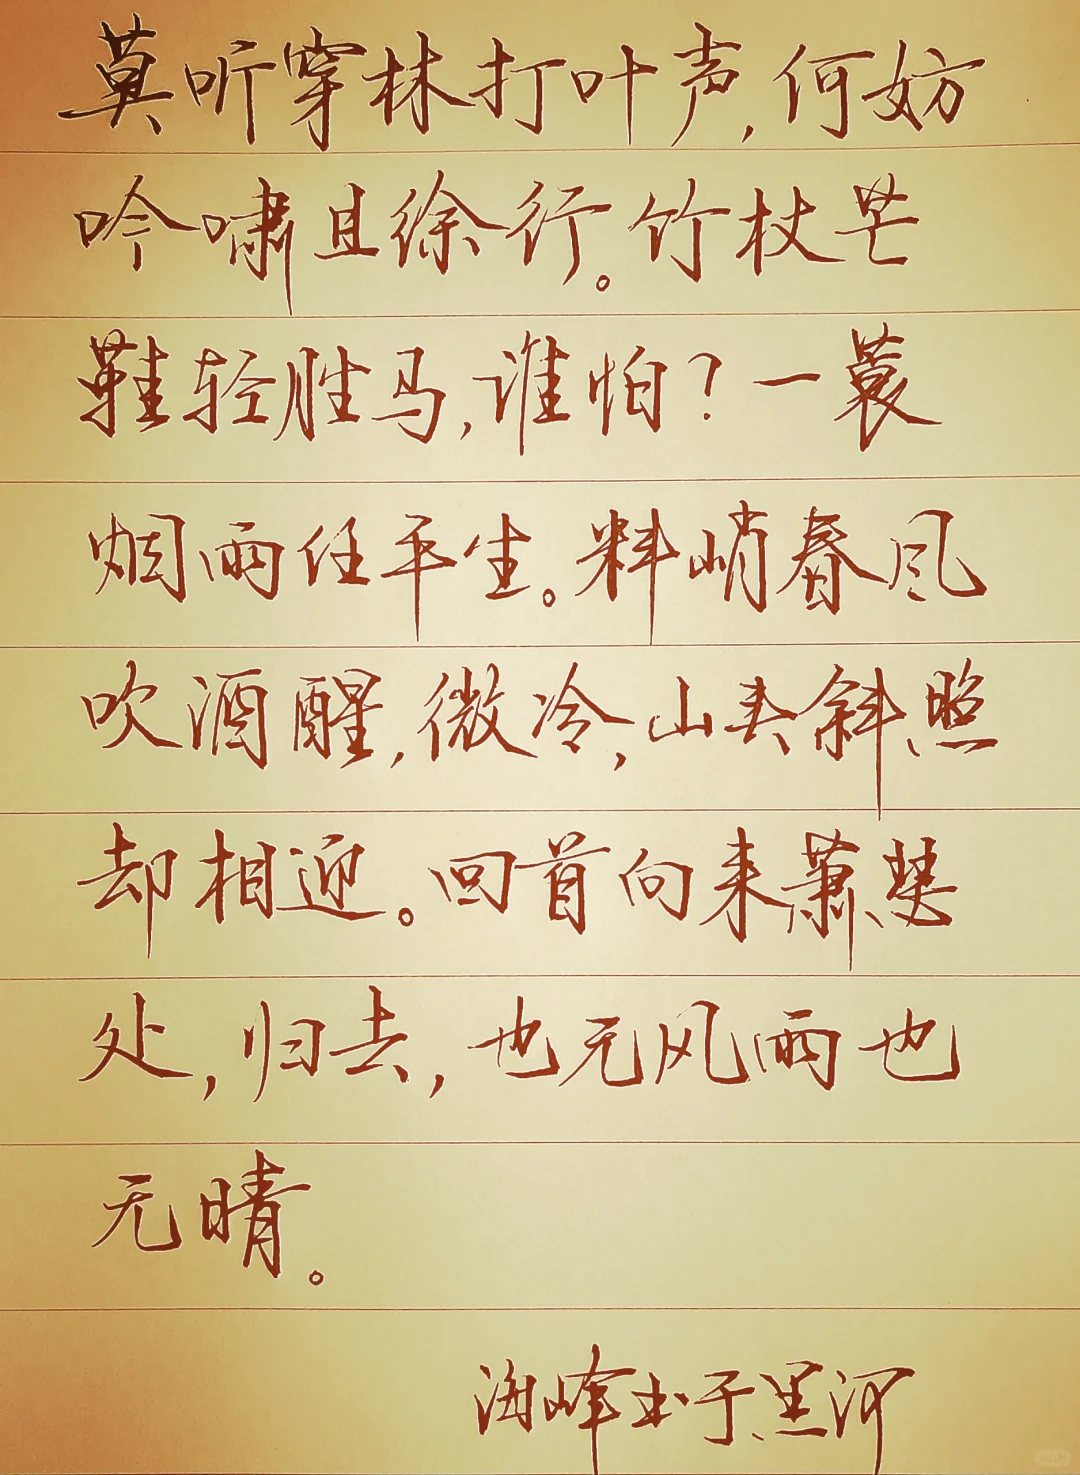 莫听穿林打叶声,何妨
吟啸且徐行。竹杖芒
鞋轻胜马,谁怕?一蓑
烟雨任平生。料峭春风
吹酒醒,微冷,山头斜照
却相迎。回首向来萧瑟
处,归去,也无风雨也
无晴。
海峰书于黑河